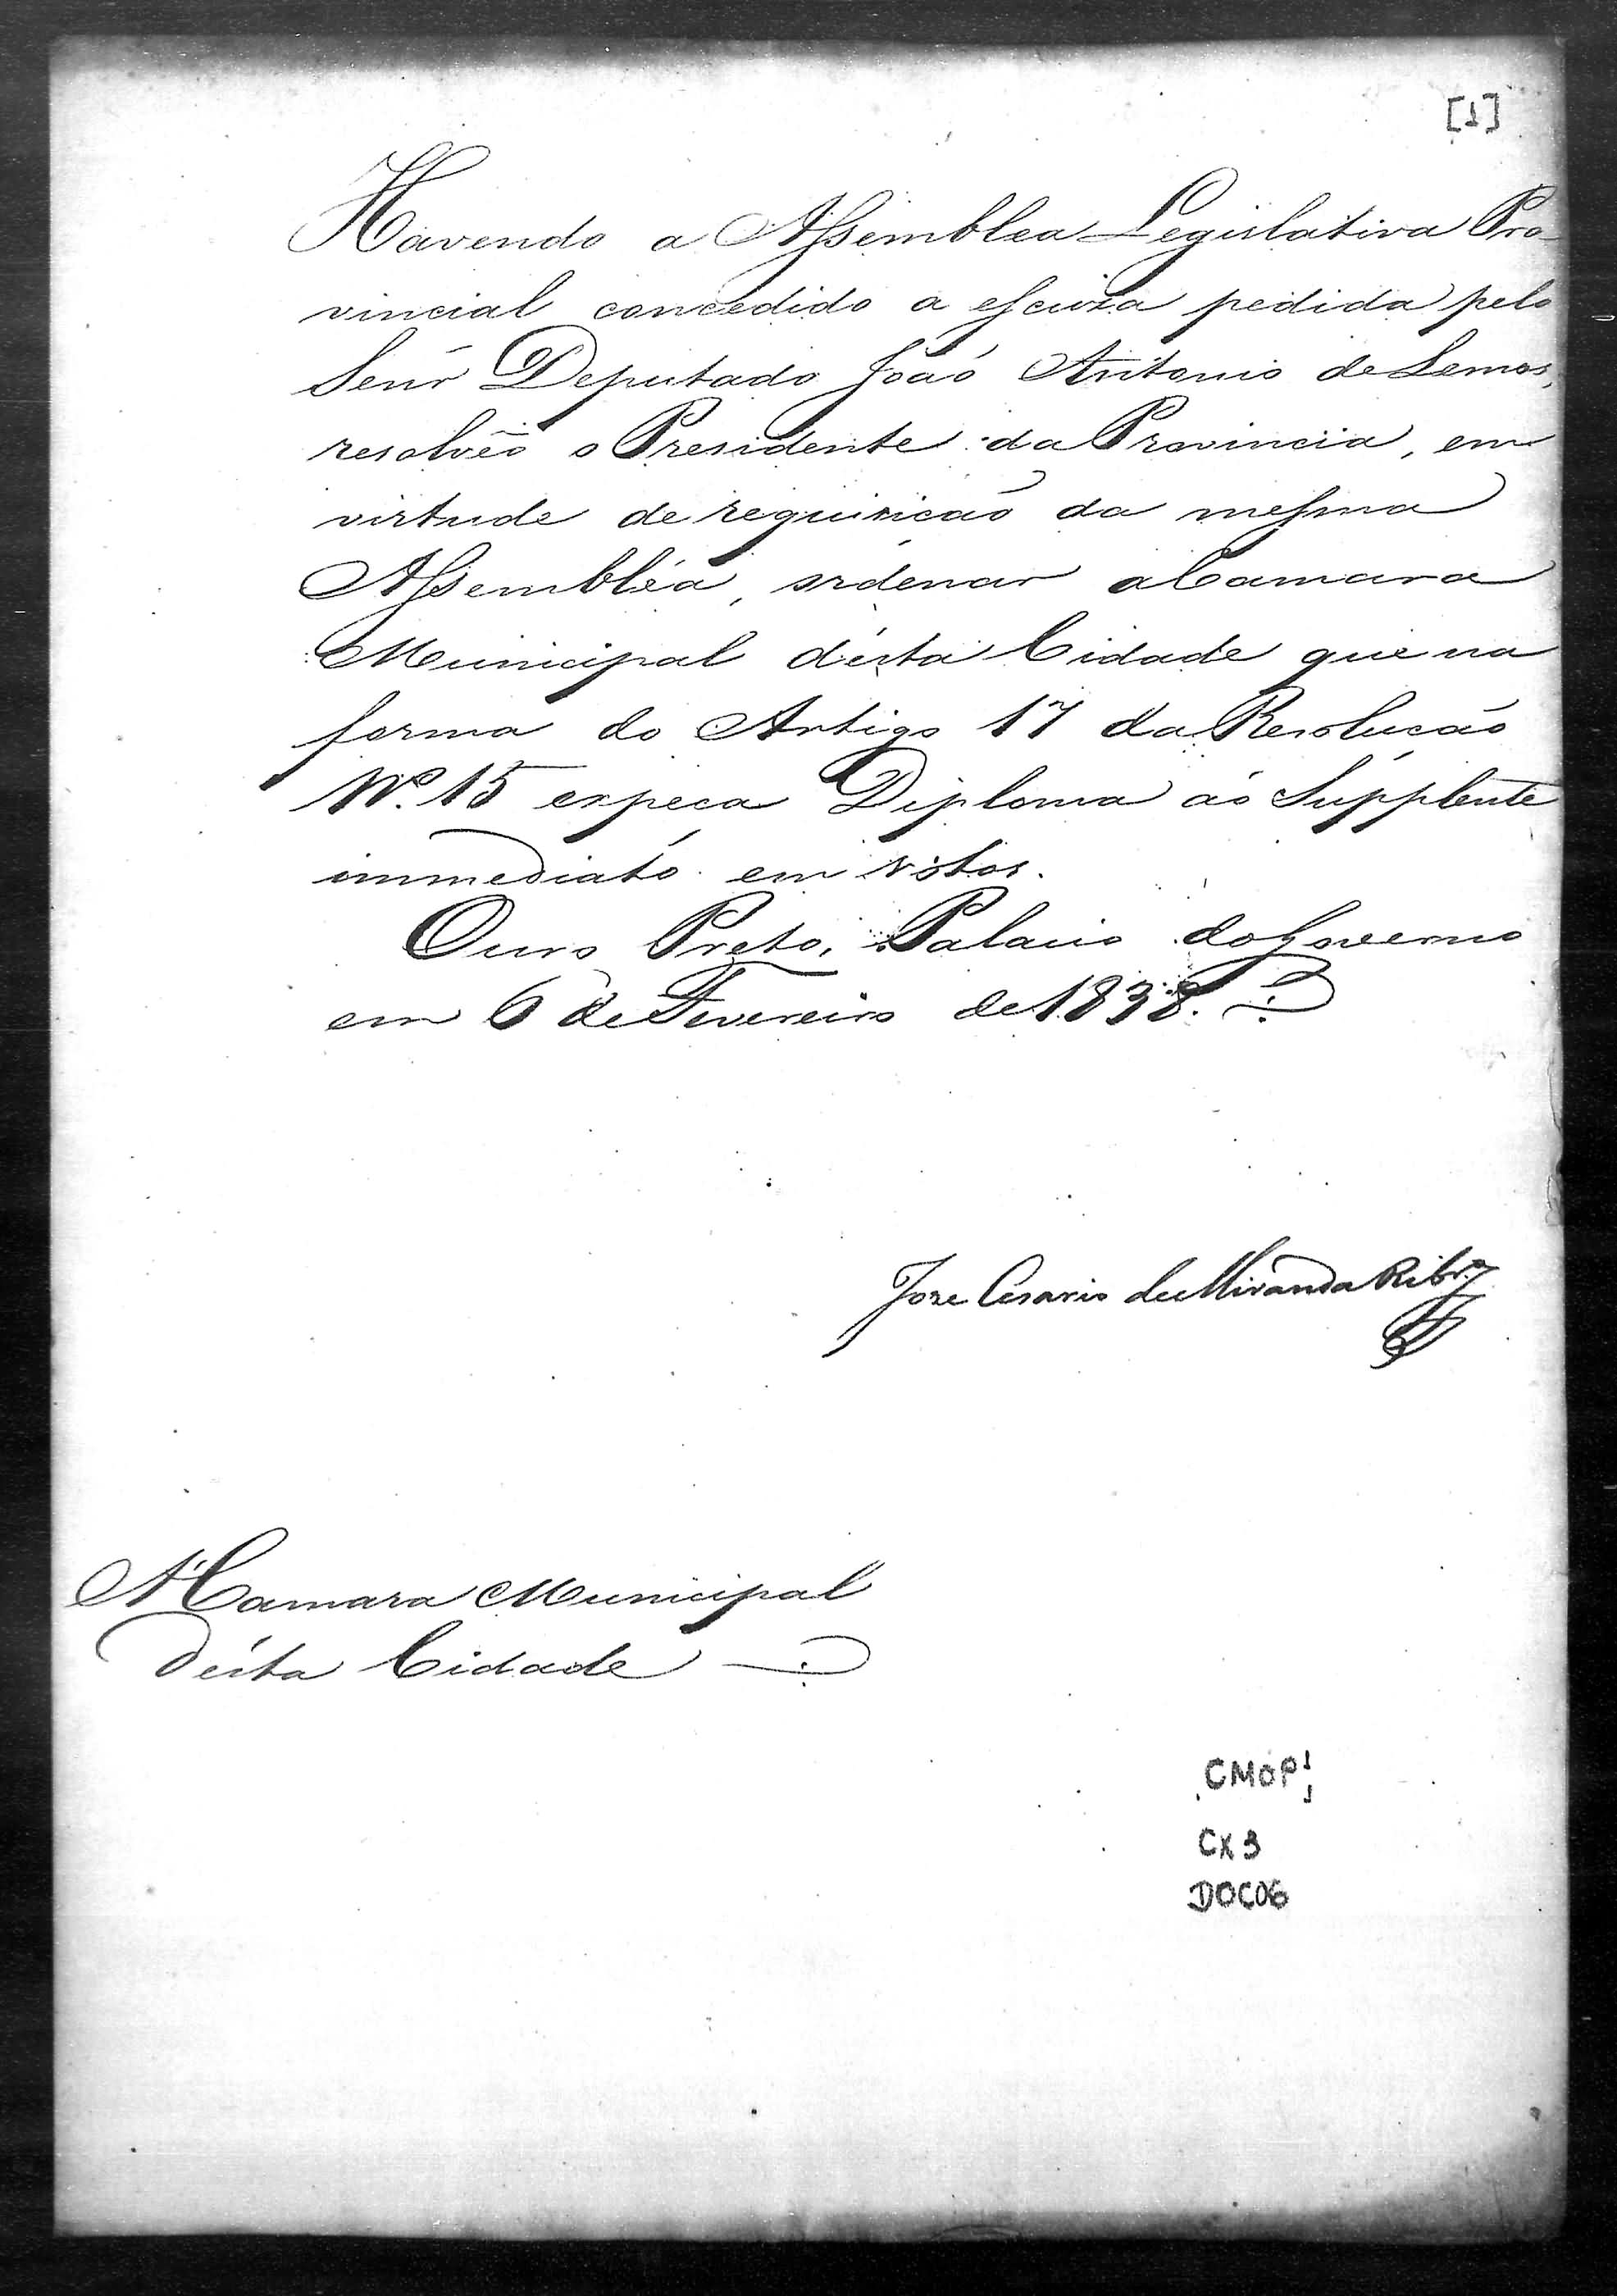 [1]
Havendo a Assemblea Legislativa Pro-
vincial concedido a escuza pedida pelo
Senr̄ Deputado João Antonio de Lemos,
resolvêo o Presidente da Provincia, em
virtude de requisicão da mesma
Assembléa, ordenar a Camara
Municipal désta Cidade que na
forma do Artigo 17 da Resolucão
Nº. 15 expeca Diploma áo Supplente
immediato em vótos.
Ouro Preto, Palacio do Governo
em 6 de Fevereiro de 1838.
Joze Cesario de Miranda Ribrº
A' Camara Municipal
désta Cidade
CMOP
CX 3
DOC06